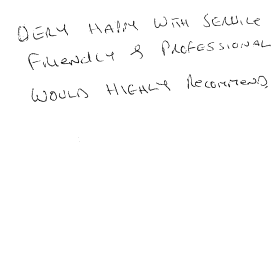 VERY HAPPY WITH SERVICE
FRIENDLY & PROFESSIONAL
WOULD HIGHLY RECOMMEND.